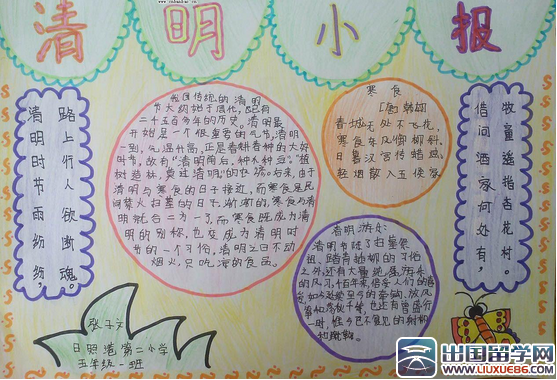 清明小报
路上行人欲断魂。
清明时节雨纷纷,
我国传统的清明
节大约始于周代,已有
二千五百多年的历史。清明最
开始是一个很重要的节气,清明
一到,气温升高,正是春耕春种的大好
时节,故有“清明前后,种瓜种豆。”“植
树造林,莫过清明”的农谚。后来,由于
清明与寒食的日子接近,而寒食是民
间禁火扫墓的日子,渐渐的,寒食与清
明就合二为一了,而寒食既成为清明
的别称,也变成为清明时
节的一个习俗,清明之日不动
烟火,只吃凉的食品。
寒食
[唐]韩翃
春城无处不飞花,
寒食东风御柳斜。
日暮汉宫传蜡烛,
轻烟散入五侯家
牧童遥指杏花村。
借问酒家何处有,
清明游戏:
清明节除了扫墓祭
祖、踏青插柳的习俗
之外,还有大量
的风习,
张子文
日照港第二小学
五年级一班
出国留学网
www.liuxue86.com